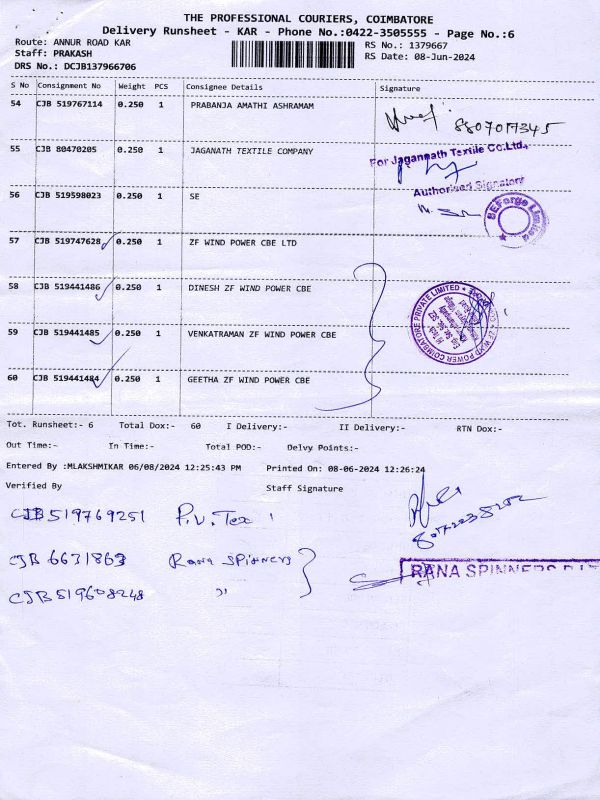 THE PROFESSIONAL COURIERS, COIMBATORE
Delivery Runsheet - KAR - Phone No.:0422-3505555 - Page No.:6
Route: ANNUR ROAD KAR
RS No.: 1379667
Staff: PRAKASH
RS Date: 08-Jun-2024
DRS No.: DCJB137966706
S No Consignment No Weight PCS Consignee Details Signature
54 CJB 519767114 0.250 1 PRABANJA AMATHI ASHRAMAM
55 CJB 80470205 0.250 1 JAGANATH TEXTILE COMPANY
For Jagannath Textile Co.Ltd.,
Authorised Signatory
56 CJB 519598023 0.250 1 SE
SEForge Limited
57 CJB 519747628 0.250 1 ZF WIND POWER CBE LTD
58 CJB 519441486 0.250 1 DINESH ZF WIND POWER CBE
ZF WIND POWER COIMBATORE PRIVATE LIMITED
59 CJB 519441485 0.250 1 VENKATRAMAN ZF WIND POWER CBE
60 CJB 519441484 0.250 1 GEETHA ZF WIND POWER CBE
Tot. Runsheet:- 6 Total Dox:- 60 I Delivery:- II Delivery:- RTN Dox:-
Out Time:- In Time:- Total POD:- Delvy Points:-
Entered By :MLAKSHMIKAR 06/08/2024 12:25:43 PM Printed On: 08-06-2024 12:26:24
Verified By Staff Signature
CJB 519769251 P.V. Tex
CJB 6631863 Rana Spinners
RANA SPINNERS
CJB 519608248 "